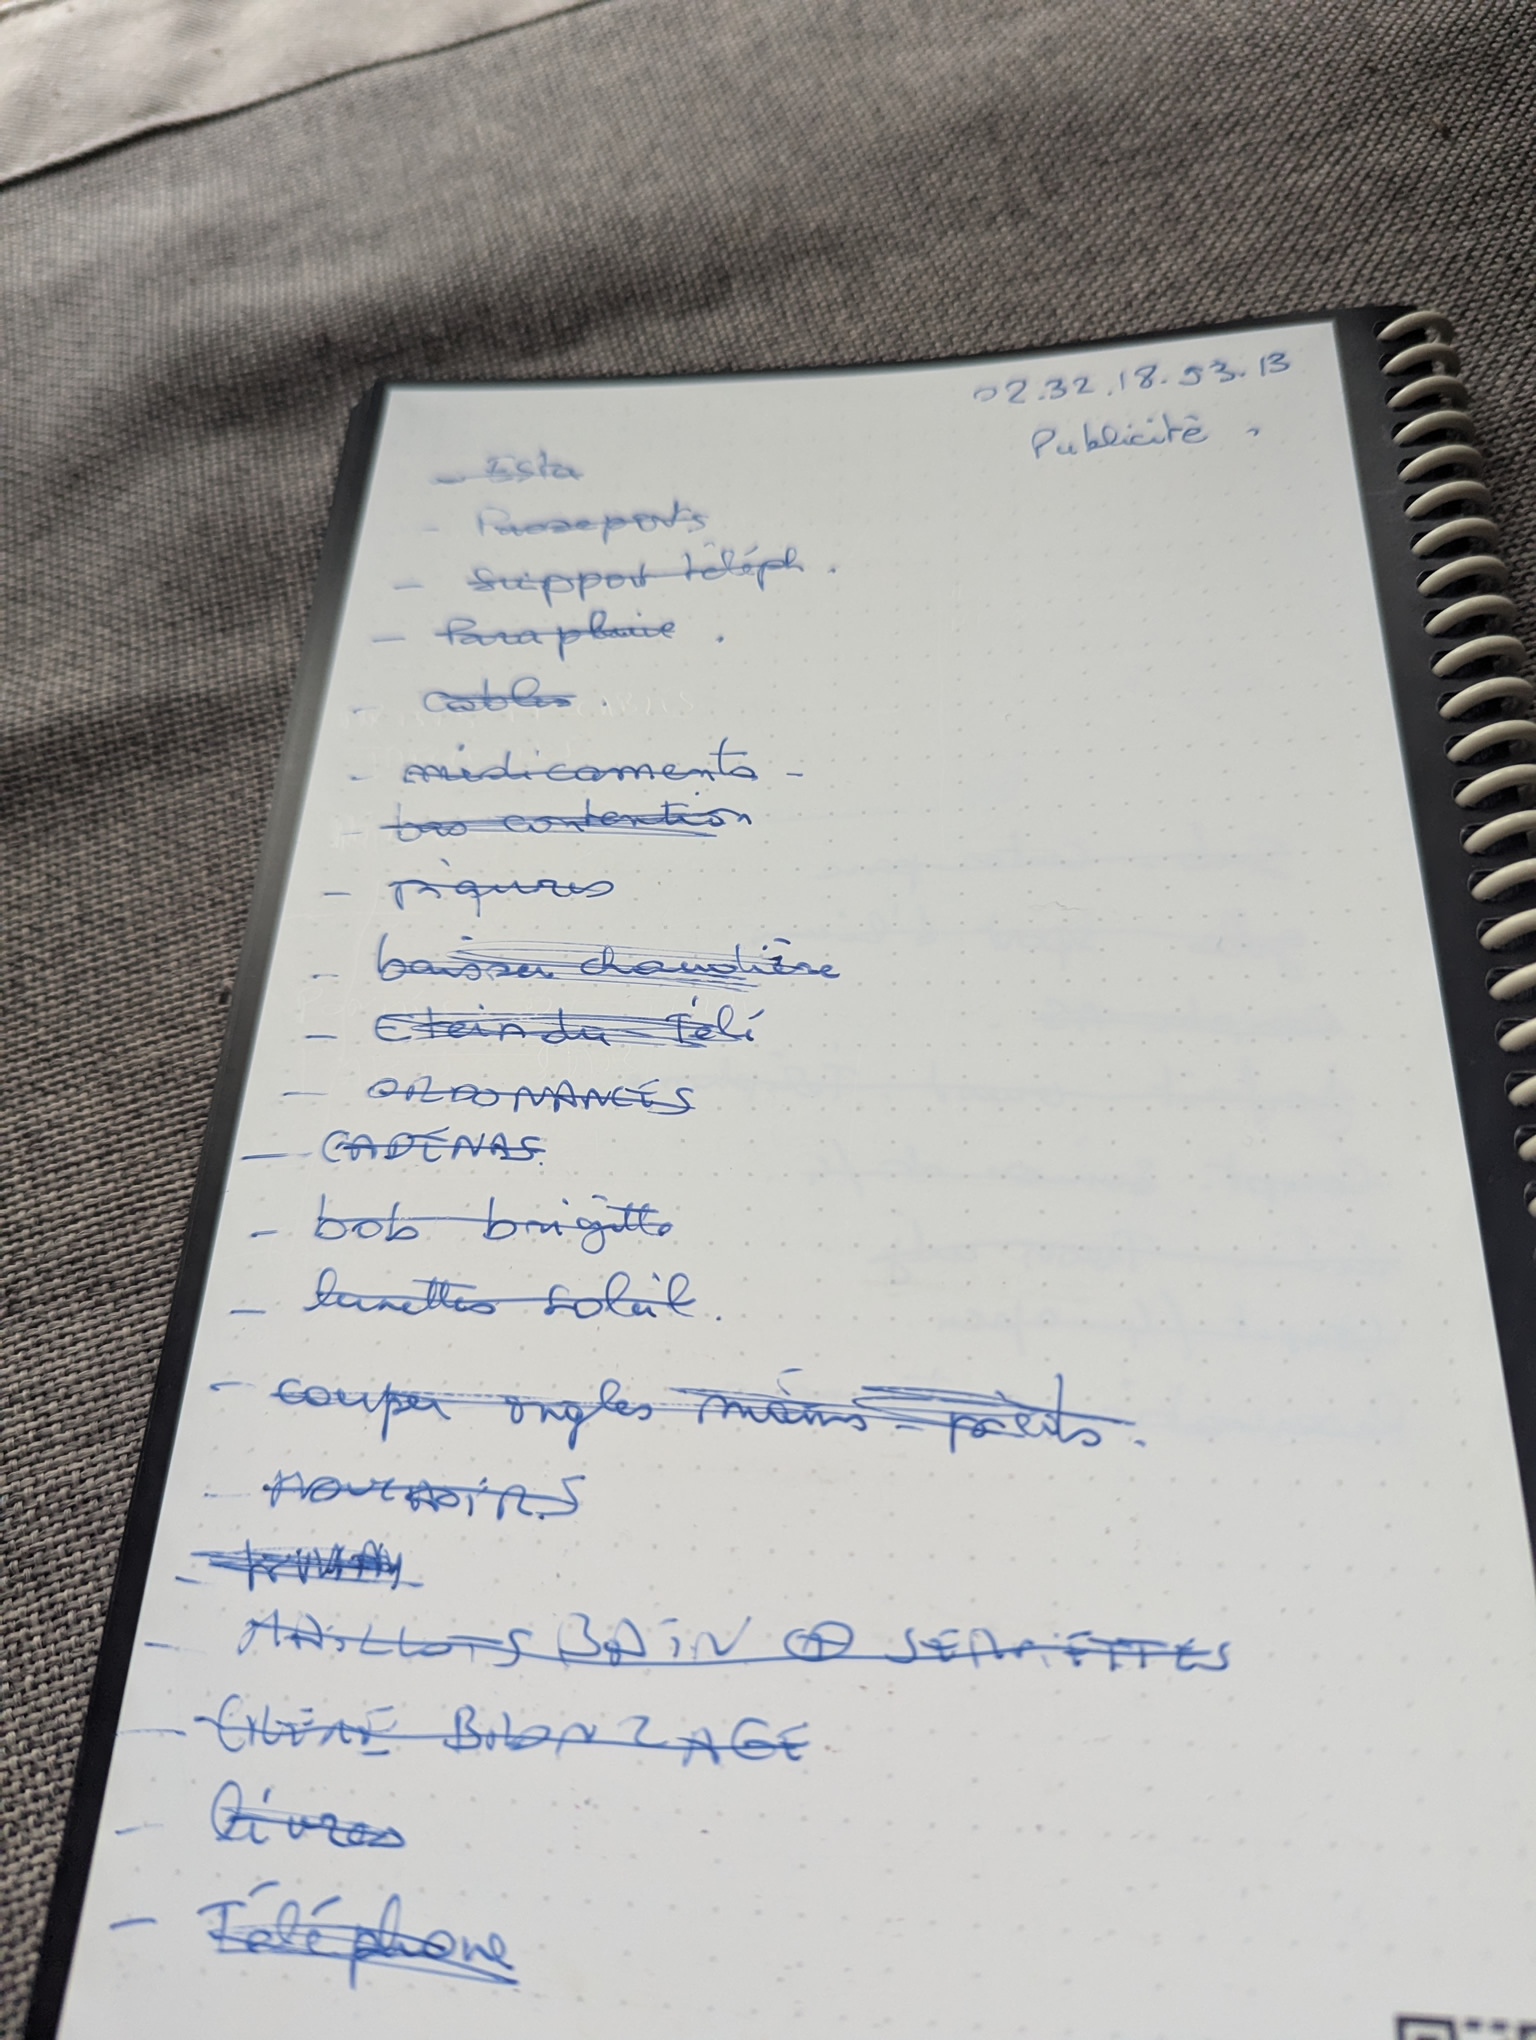 02.32.18.53.13
Publicité.
- Esta
- Passeports
- Support téléph.
- Parapluie.
- cables.
- médicaments -
- bas contention
- piqures
- baisser chaudière
- Eteindre Télé
- ORDONANCES
- CADENAS.
- bob brigitte
- lunettes soleil.
- couper ongles mains - pieds.
- MOUCHOIRS
-
- MAILLOTS BAIN ⊕ SERVIETTES
- CREME BRONZAGE
- livres
- Téléphone